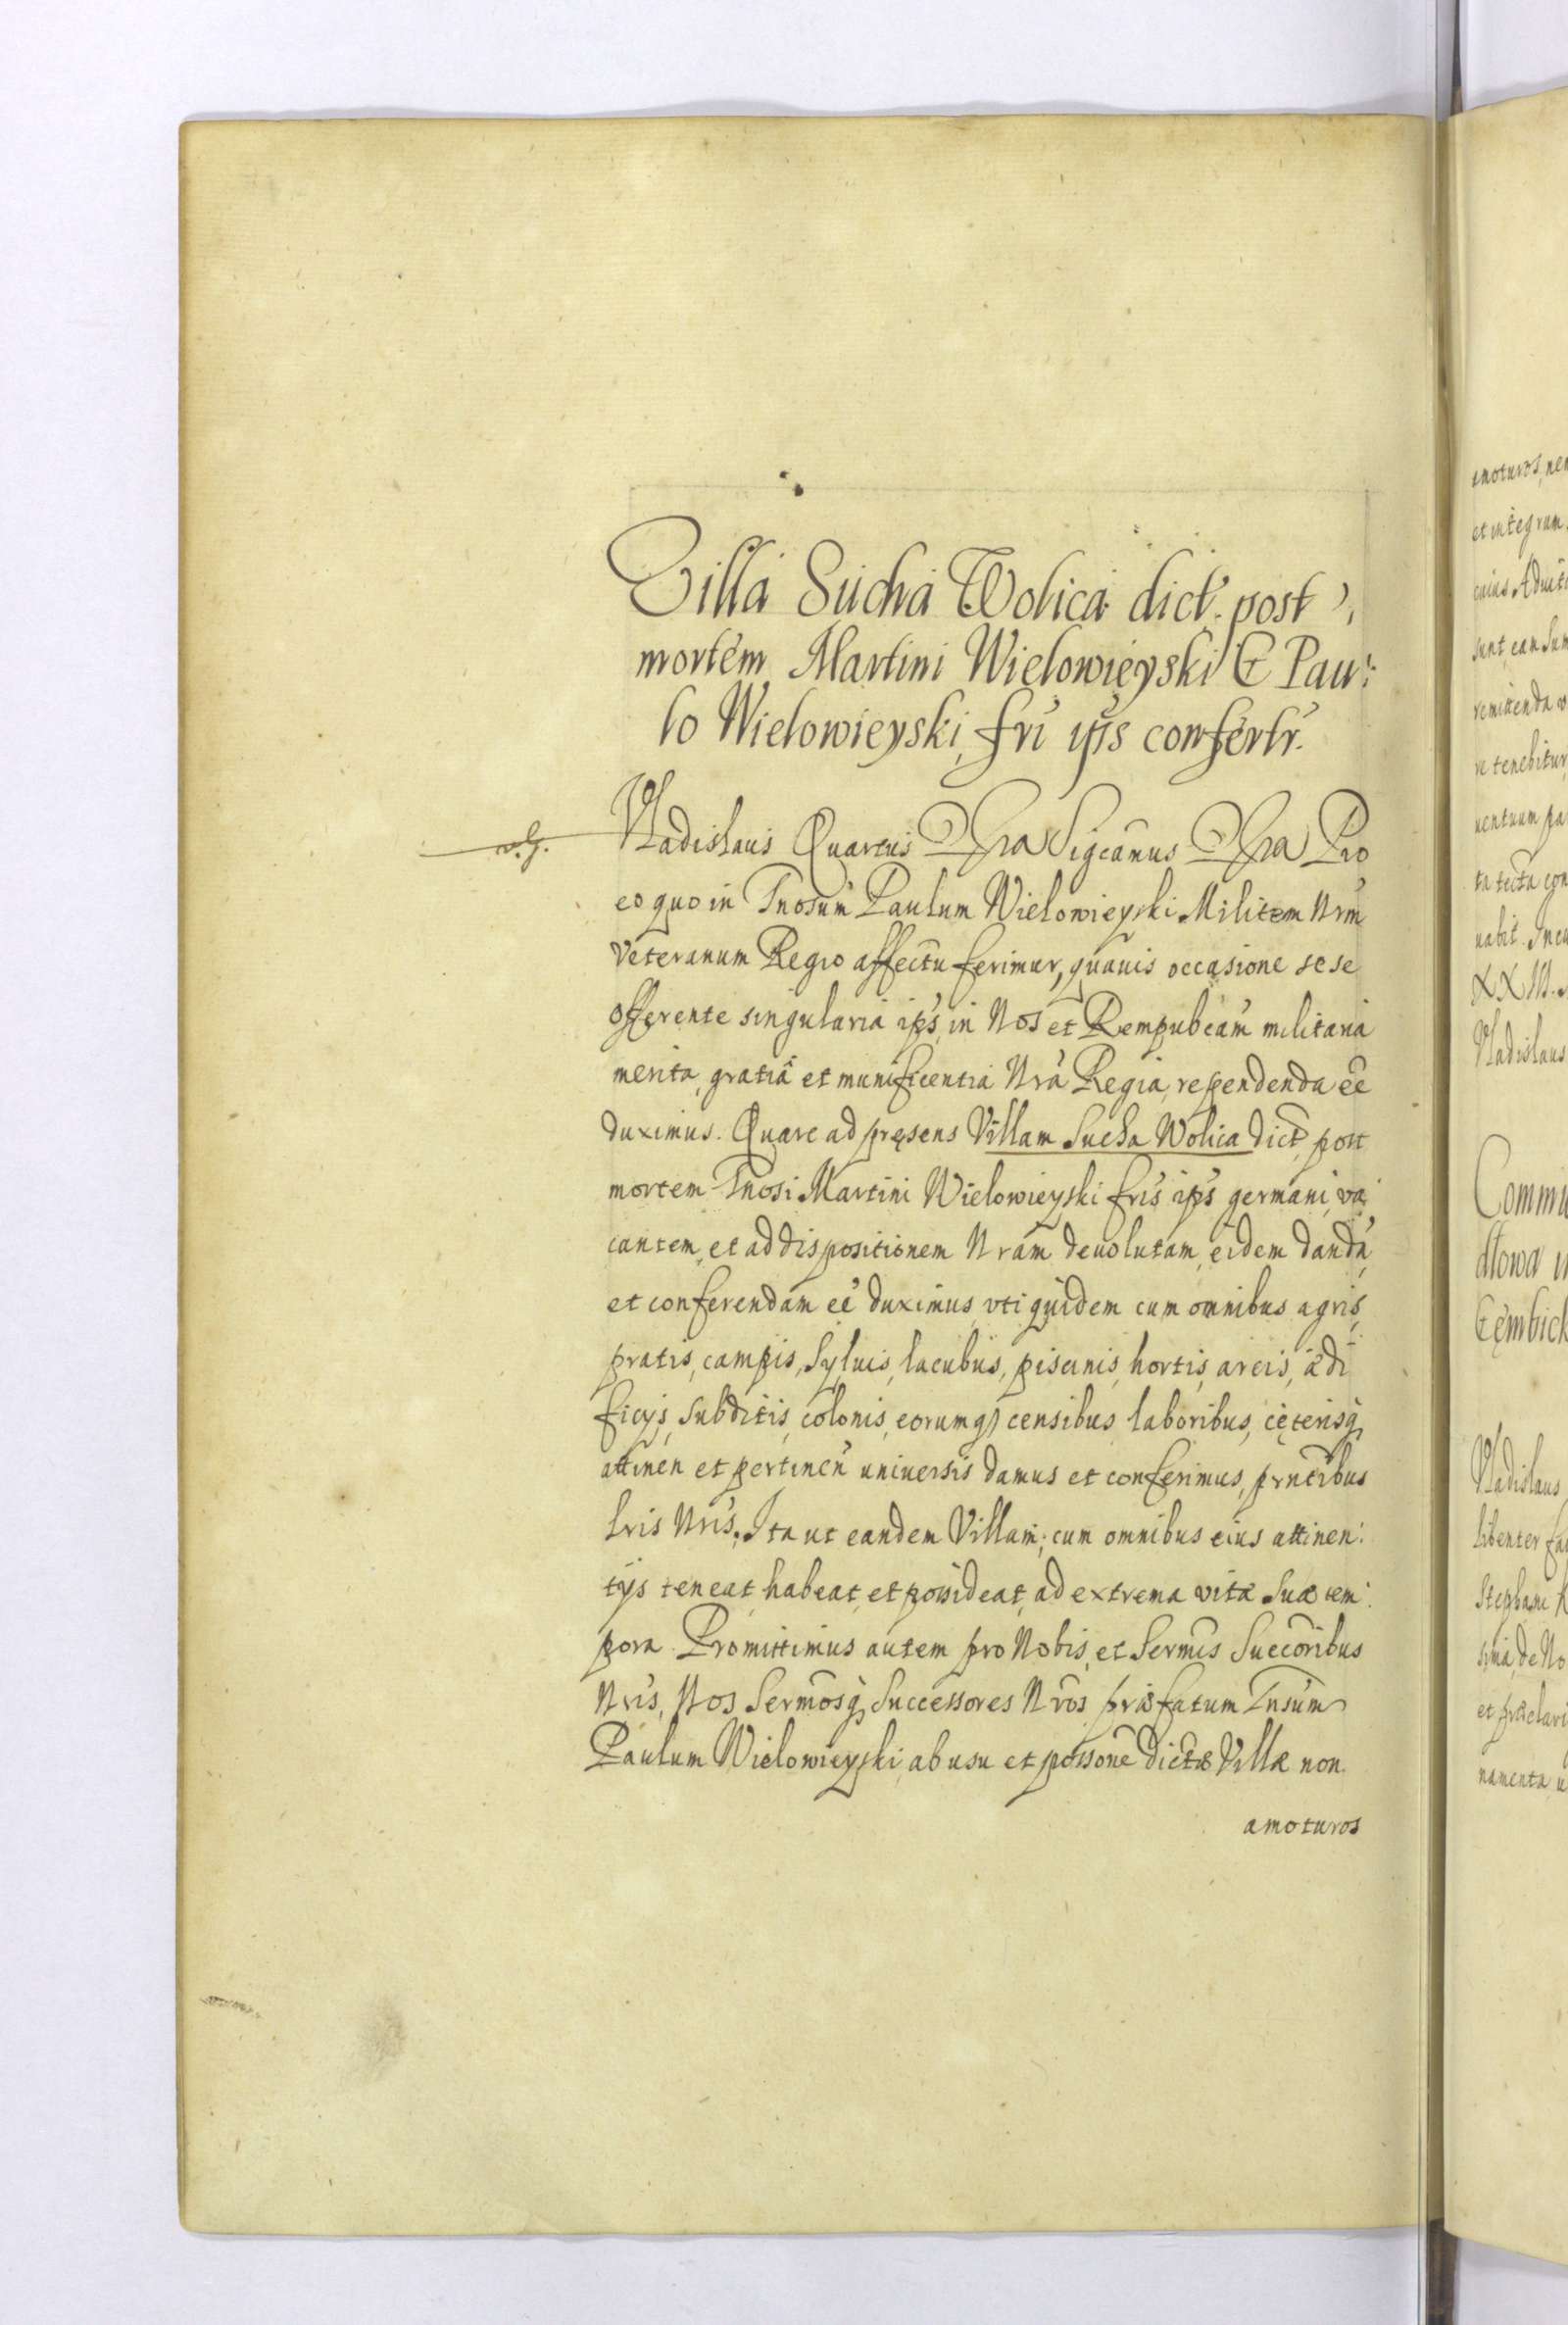 Villa Sucha Wolica dict. post
mortem Martini Wielowieyski G Pau:
lo Wielowieyski, fri ipis confertr.
Vladislaus Quartus Significamus Pro
eo quo in Gnosum Paulum Wielowieyski Militem Nrm
veteranum Regio affectu ferimur, quavis occasione sese
offerente singularia ips, in Nos et Rempubcam militaria
merita, gratia et munificentia Nra Regia, rependenda ee
duximus. Quare ad pręsens Villam Sucha Wolica dict, post
mortem Gnosi Martini Wielowieyski fris ips germani, va
cantem, et ad dispositionem Nram devolutam, eidem dandã
et conferendam eé duximus, vti quidem cum omnibus agris,
pratis, campis, Syluis, lacubus, piscinis, hortis, areis, ædi
ficys, subditis, colonis, eorumq censibus laboribus, cęterisq
attinen et pertinen universis damus et conferimus, prntibus
lris Nris. Ita ut eandem Villam, cum omnibus eius attinen:
tys teneat, habeat, et possideat, ad extrema vitæ suæ tem:
pora. Promittimus autem pro Nobis, et Sermis Succoribus
Nris, Nos Sermosq Successores Nros præfatum Gnsum
Paulum Wielowieyski, ab usu et possone dictæ Villæ non
amoturos
amoturos, nen
et integrum
cuius Advit
sunt, ean sum
remittenda v
re tenebitur
uentuum pa
ta tecta con
uabit. Incu
XX M.
Vladislaus
Commu
dlowa i
Gembick
Vladislaus
libenter fa
Stephani K
de No
et præclari
namenta u